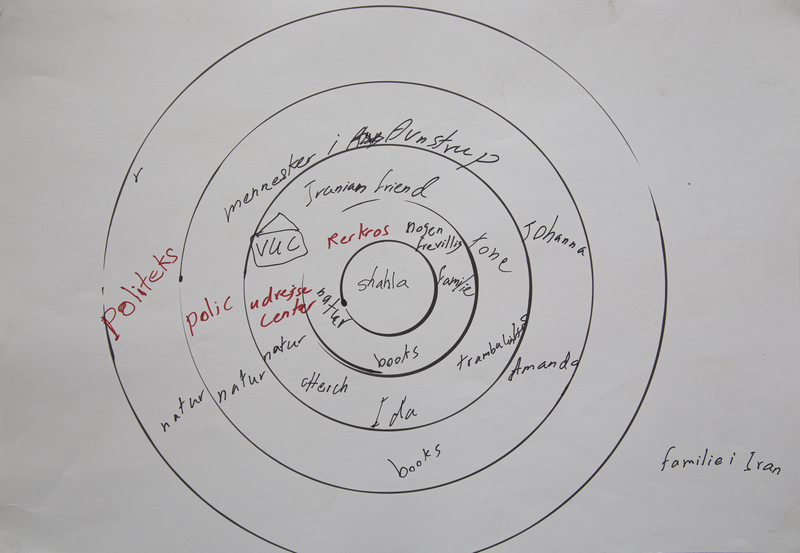 mennesker i Avnstrup
Iranian friend
r
VUC
Rerkros
nogen
frevillig
tone
Johanna
Politeks
polic
udrejse
center
natur
shahla
familie
natur
natur
natur
books
cHerch
Amanda
Ida
books
familie i Iran